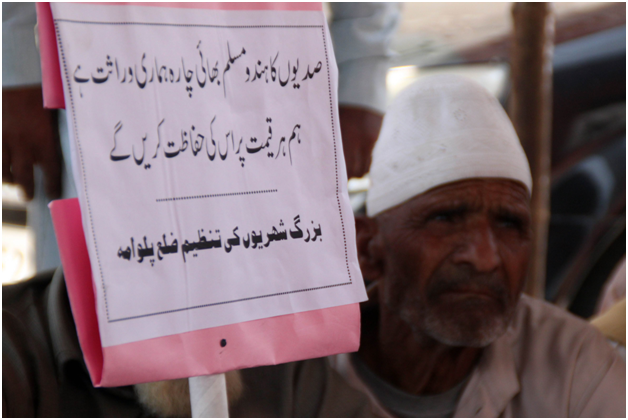 صدیوں کا ہندو مسلم بھائی چارہ ہماری وراثت ہے
ہم ہر قیمت پر اس کی حفاظت کریں گے
بزرگ شہریوں کی تنظیم ضلع پلوامہ